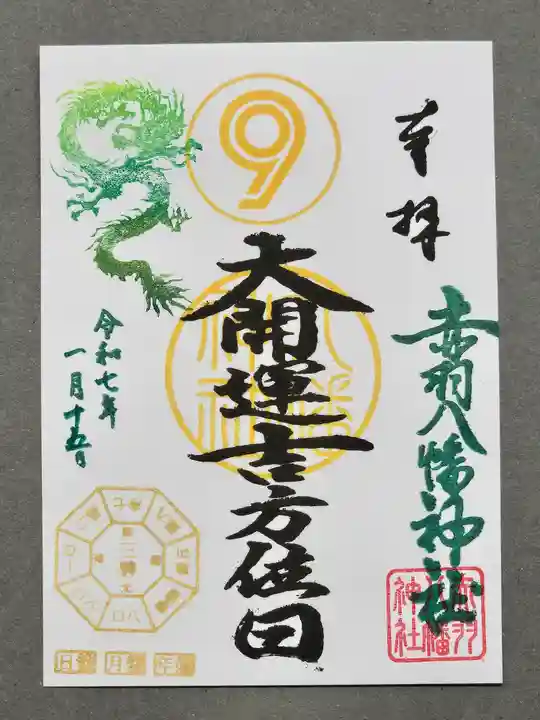 奉拝
赤羽八幡神社
大開運吉方位日
令和七年
一月十五日
赤羽
八幡
神社